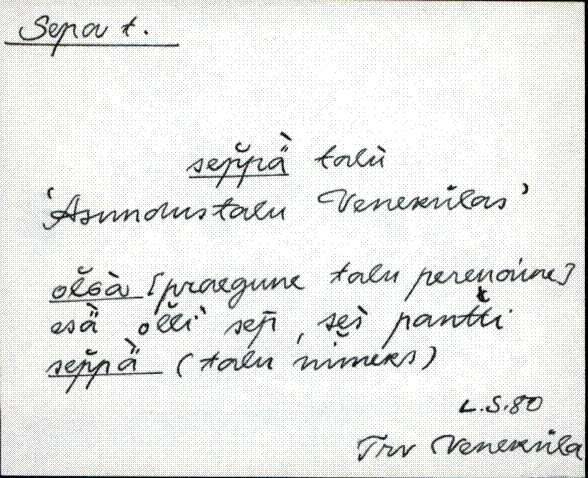 Sepa t.
sep̆pä̀ talù
'Asundustalu Venekülas'
olGà [praegune talu perenaine]
esä̀ olli sep̄, ses̀ pantti
sep̆pä̀ (talu nimeks)
L.S. 80
Trv Veneküla